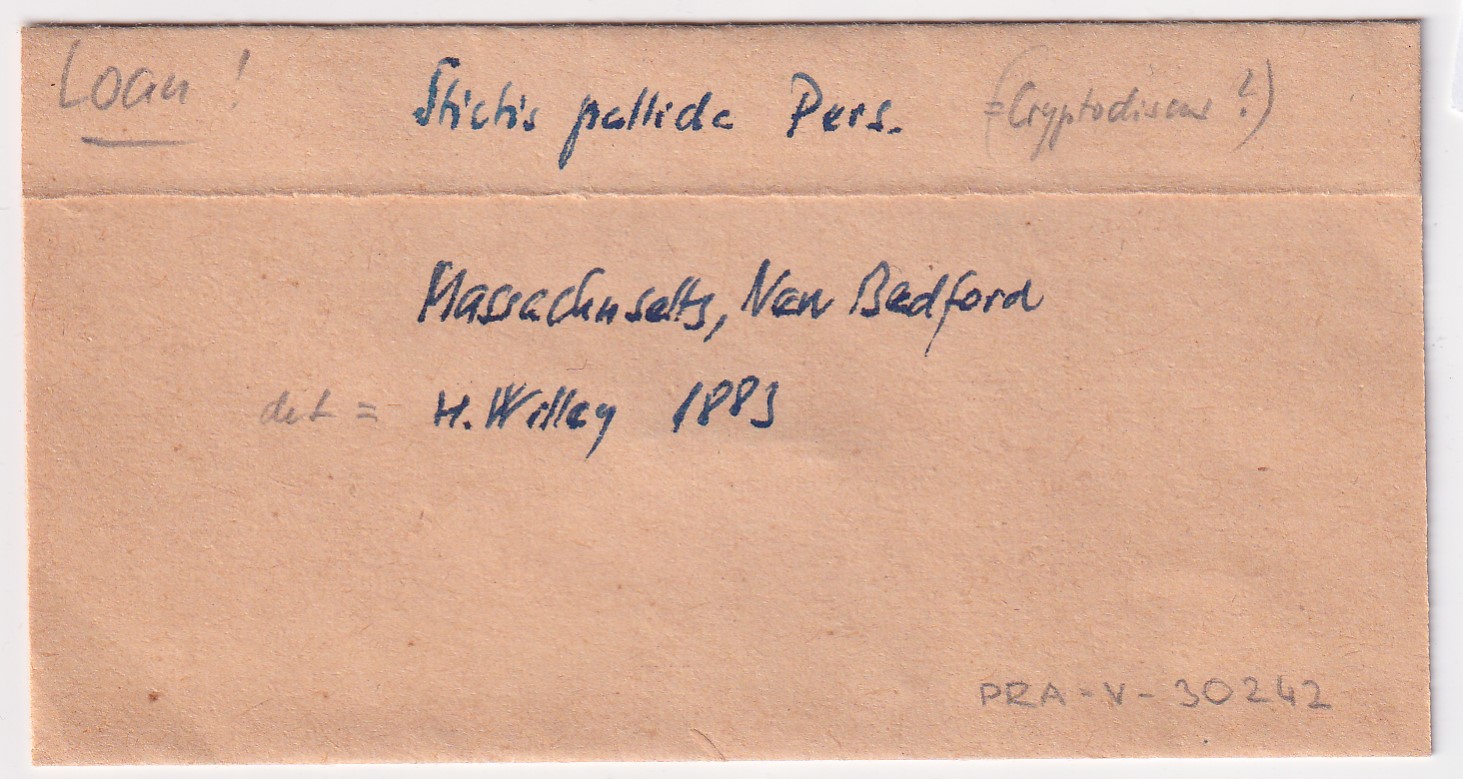 Loan! Stictis pallida Pers. (=Cryptodiscus?)
Massachusetts, New Bedford
det = H. Willey 1883
PRA-V-30242